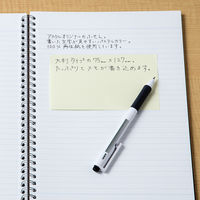 アスクルオリジナルのふせん。
書いた文字が見やすいパステルカラー。
100% 再生紙を使用しています。
大判タイプの75mm×127mm。
たっぷりとメモが書き込めます。